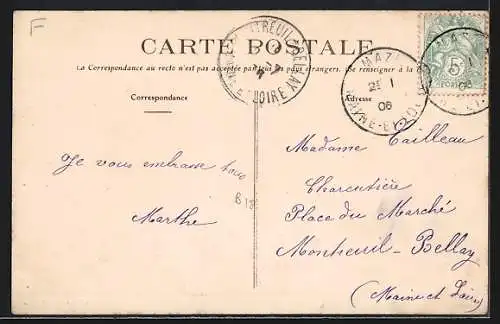 F
CARTE POSTALE
La Correspondance au recto n'est pas acceptée par tous les pays étrangers. Se renseigner à la
Correspondance
Adresse
MONTREUIL-BELLAY
ET LOIRE
MAZÉ
21 1
06
MAINE-ET-LOIRE
06
5
Je vous embrasse tous
Marthe
B 13
Madame Tailleau
Charcutière
Place du Marché
Montreuil-Bellay
(Maine et Loire)